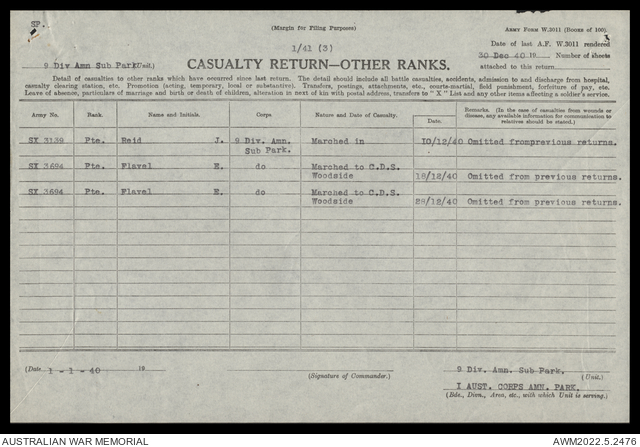 SP.
(Margin for Filing Purposes)
ARMY FORM W.3011 (BOOKS OF 100).
1/41 (3)
3
Date of last A.F. W.3011 rendered
9 Div Amn Sub Park (Unit.)
CASUALTY RETURN—OTHER RANKS.
30 Dec 40 19 Number of sheets
attached to this return
Detail of casualties to other ranks which have occurred since last return. The detail should include all battle casualties, accidents, admission to and discharge from hospital,
casualty clearing station, etc. Promotion (acting, temporary, local or substantive). Transfers, postings, attachments, etc., courts-martial, field punishment, forfeiture of pay, etc.
Leave of absence, particulars of marriage and birth or death of children, alteration in next of kin with postal address, transfers to "X" List and any other items affecting a soldier's service.
Army No. Rank. Name and Initials. Corps. Nature and Date of Casualty. Date. Remarks. (In the case of casualties from wounds or disease, any available information for communication to relatives should be stated.)
SX 3139 Pte. Reid J. 9 Div. Amn. Sub Park. Marched in 10/12/40 Omitted fromprevious returns.
SX 3694 Pte. Flavel E. do Marched to C.D.S. Woodside 18/12/40 Omitted from previous returns.
SX 3694 Pte. Flavel E. do Marched to C.D.S. Woodside 28/12/40 Omitted from previous returns.
(Date 1-1-40 19 )
(Signature of Commander.)
9 Div. Amn. Sub Park.
(Unit.)
I AUST. CORPS AMN. PARK.
(Bde., Divn., Area, etc., with which Unit is serving.)
AUSTRALIAN WAR MEMORIAL
AWM2022.5.2476